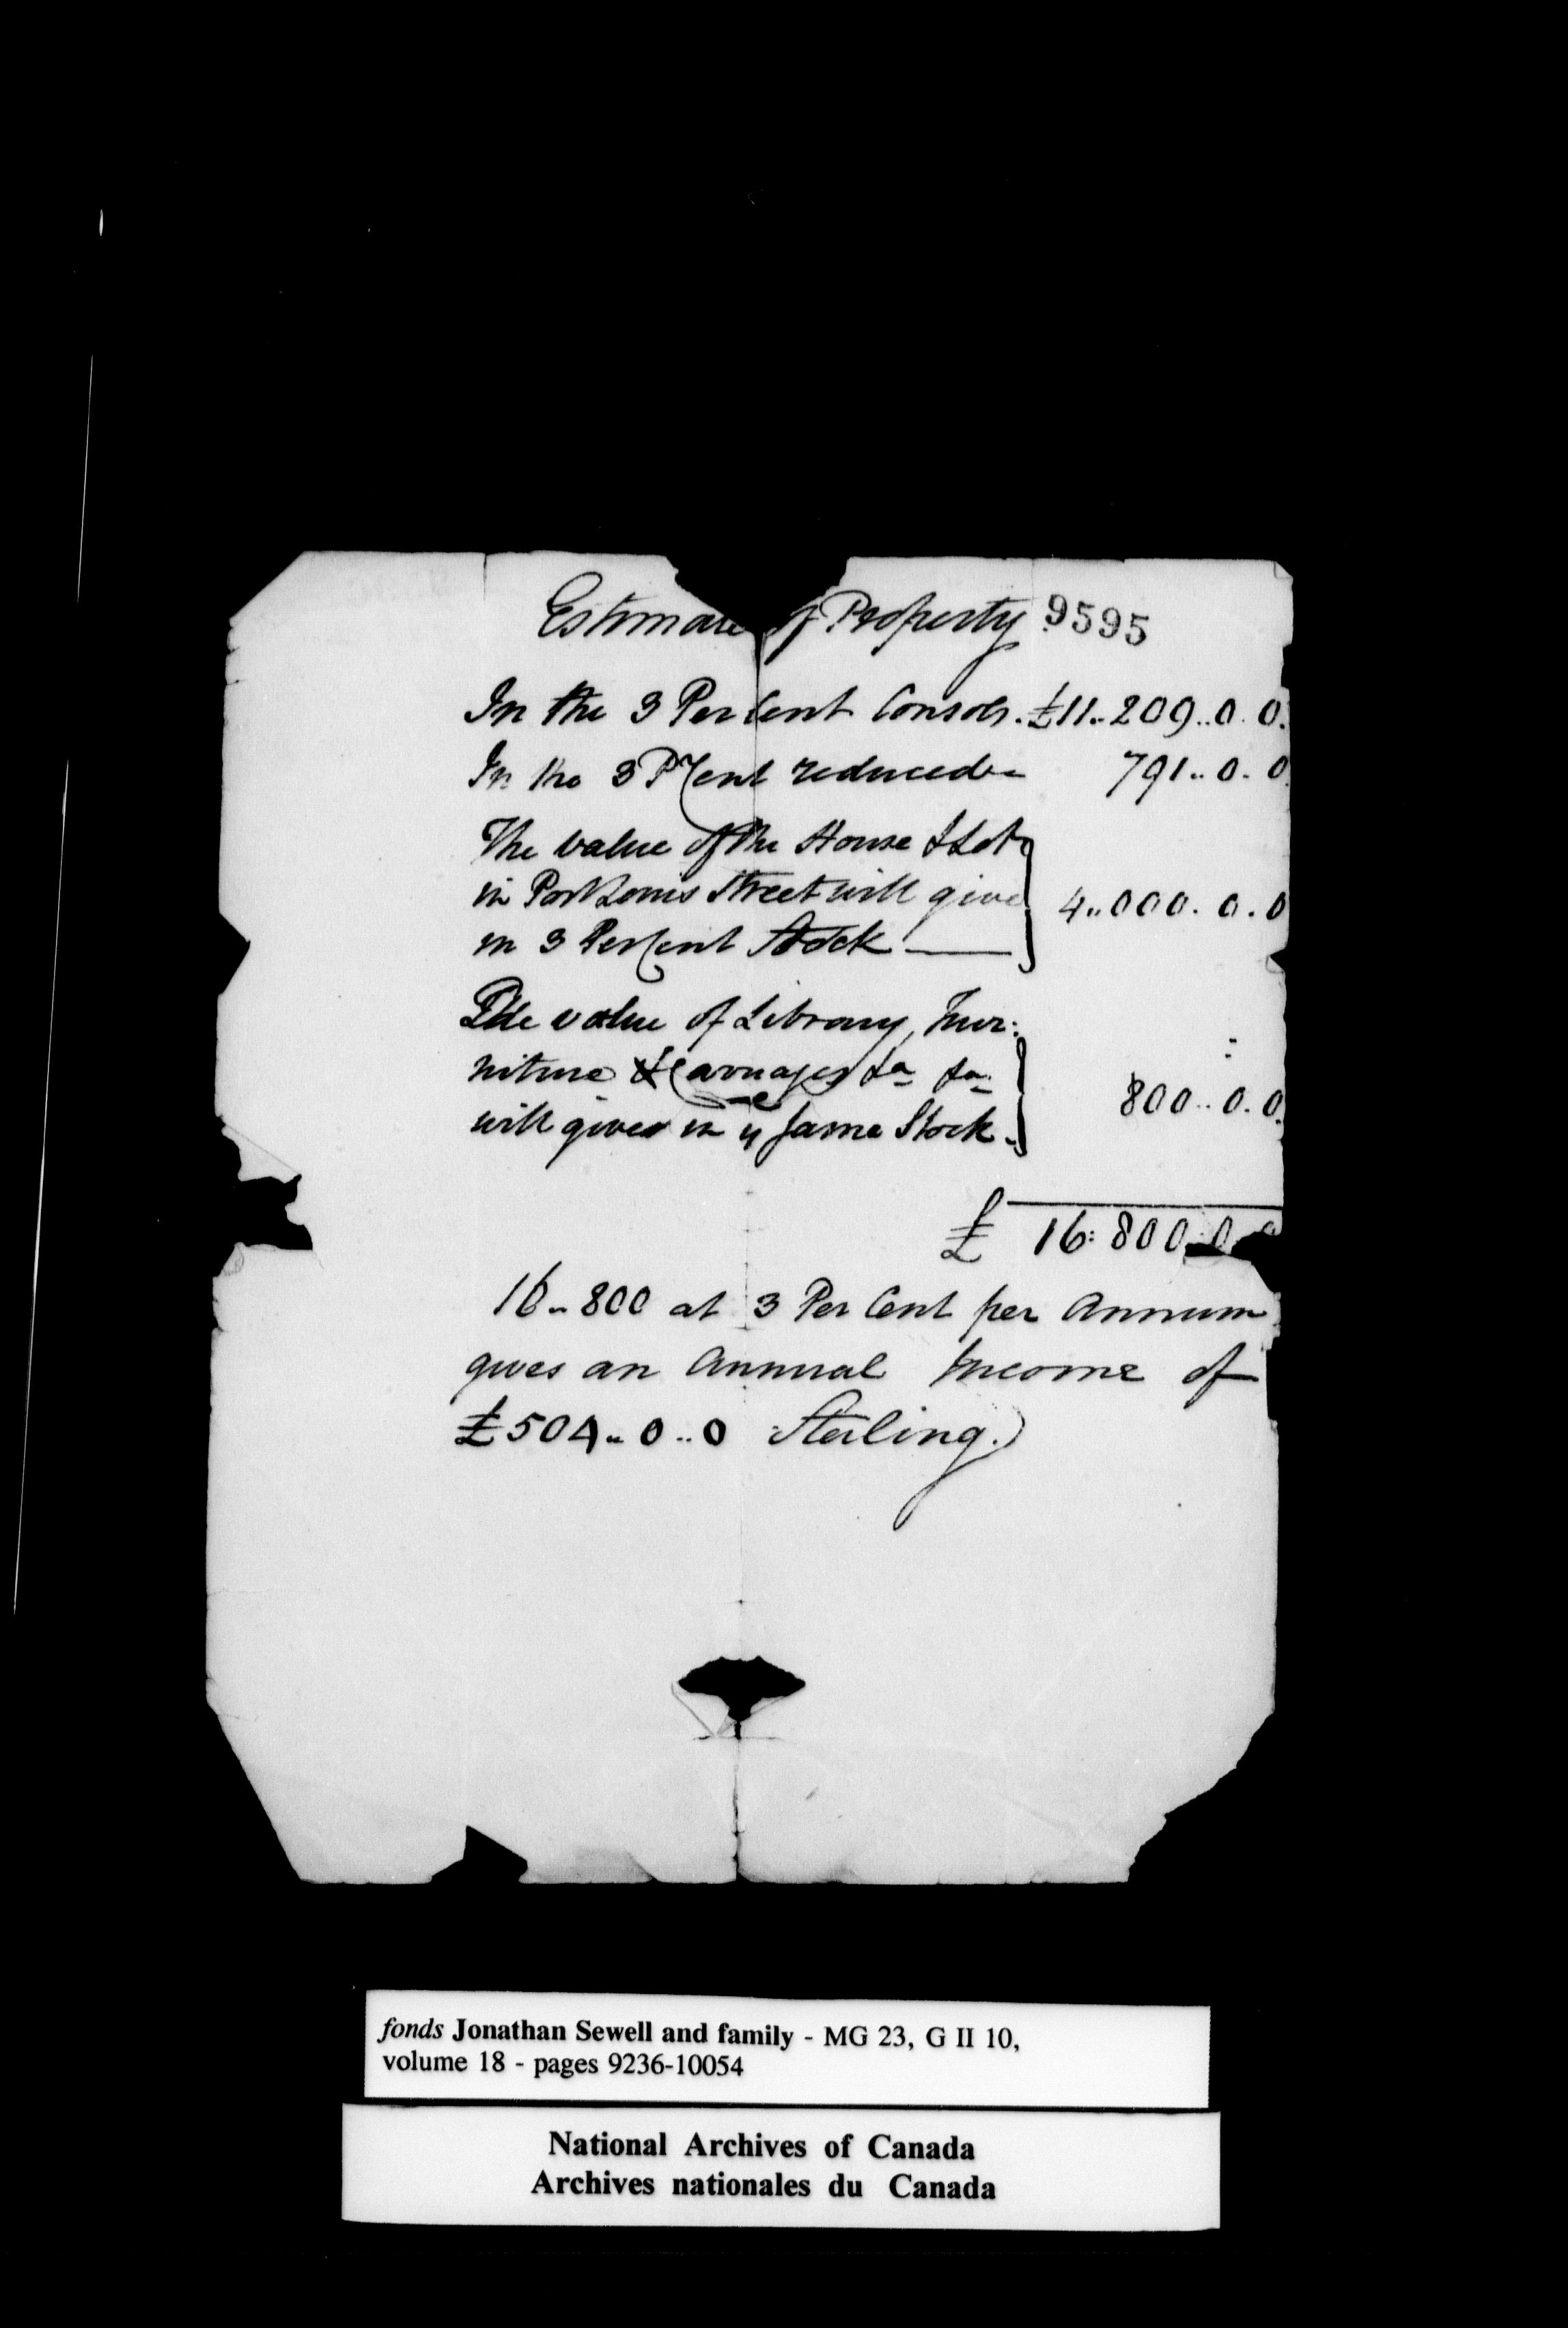 Estimate of Property 9595
In the 3 Per Cent Consols. £11..209..0.0.
In the 3 Pr Cent reduced 791..0.0
The value of the House & Lot
in Port Louis Street will give 4..000.0.0
in 3 Per Cent Stock
The value of Library, Fur:
niture & Carriages &a &a
will give in ye same Stock. 800..0.0.
£ 16:800.0.0
16..800 at 3 Per Cent per Annum
gives an Annual Income of
£504..0..0 Sterling.
fonds Jonathan Sewell and family - MG 23, G II 10,
volume 18 - pages 9236-10054
National Archives of Canada
Archives nationales du Canada